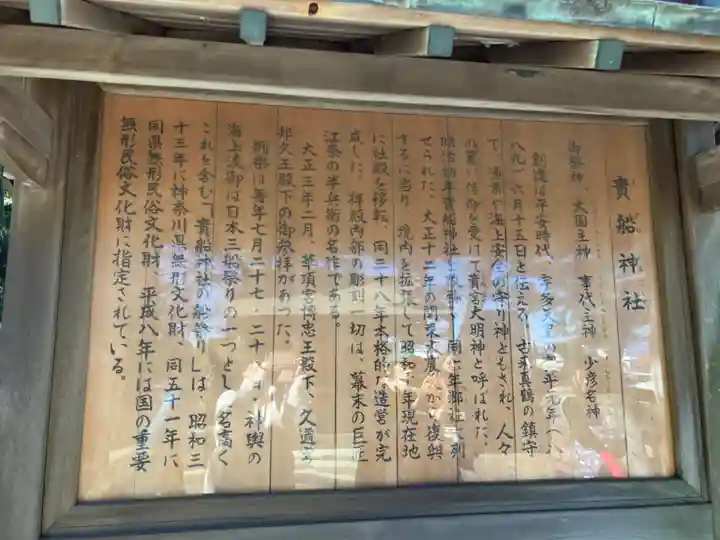 貴船神社
御祭神、大国主神 事代主神 少彦名神
創建は平安時代、宇多天皇の 年元年(八
八九)六月十五日と伝える。古来真鶴の鎮守
で、漁業や海上安全の守り神ともされ、人々
の篤い信仰を受けて貴宮大明神と呼ばれた。
明治 年貴船神社 、同 年郷社 列
せられた。大正十二年の関東大震 から復興
するに当り 境内を拡張して昭和 年現在地
に社殿を移転、同三十八年本格的な造営が完
成した。拝殿内部の彫刻一切は、幕末の巨匠
江奈の半兵衛の名作である。
大正三年二月、華頂宮博忠王殿下、久邇宮
邦久王殿下の御参拝があった。
例祭は毎年七月二十七・二十八日・神輿の
海上渡御は日本三船祭りの一つとし 名高く
これを含む「貴船神社の船祭り」は、昭和三
十三年に神奈川県無形文化財、同五十一年に
同県無形民俗文化財、平成八年には国の重要
無形民俗文化財に指定されている。